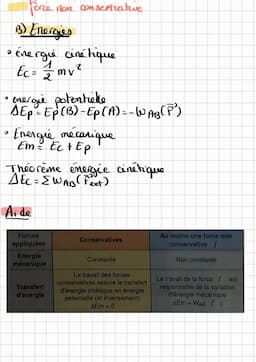 Force non conservative
B) Energies
• énergie cinétique
Ec = 1/2 mv²
• énergie potentielle
ΔEp = Ep(B) - Ep(A) = - W AB (P)
• Energie mécanique
Em = Ec + Ep
Théorème énergie cinétique
ΔEc = Σ W AB (Fext)
Aide
Forces appliquées
Conservatives
Au moins une force non conservative f
Energie mécanique
Constante
Non constante
Transfert d'énergie
Le travail des forces conservatives assure le transfert d'énergie cinétique en énergie potentielle (et inversement)
ΔEm = 0
Le travail de la force f est responsable de la variation d'énergie mécanique